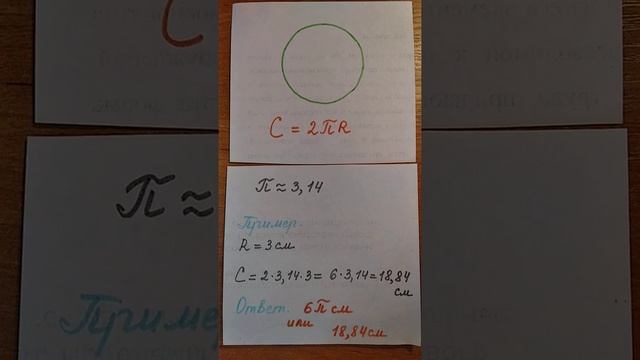 C = 2πR
π ≈ 3,14
Пример.
R = 3 см
C = 2·3,14·3 = 6·3,14 = 18,84
см
Ответ. 6π см
или
18,84 см